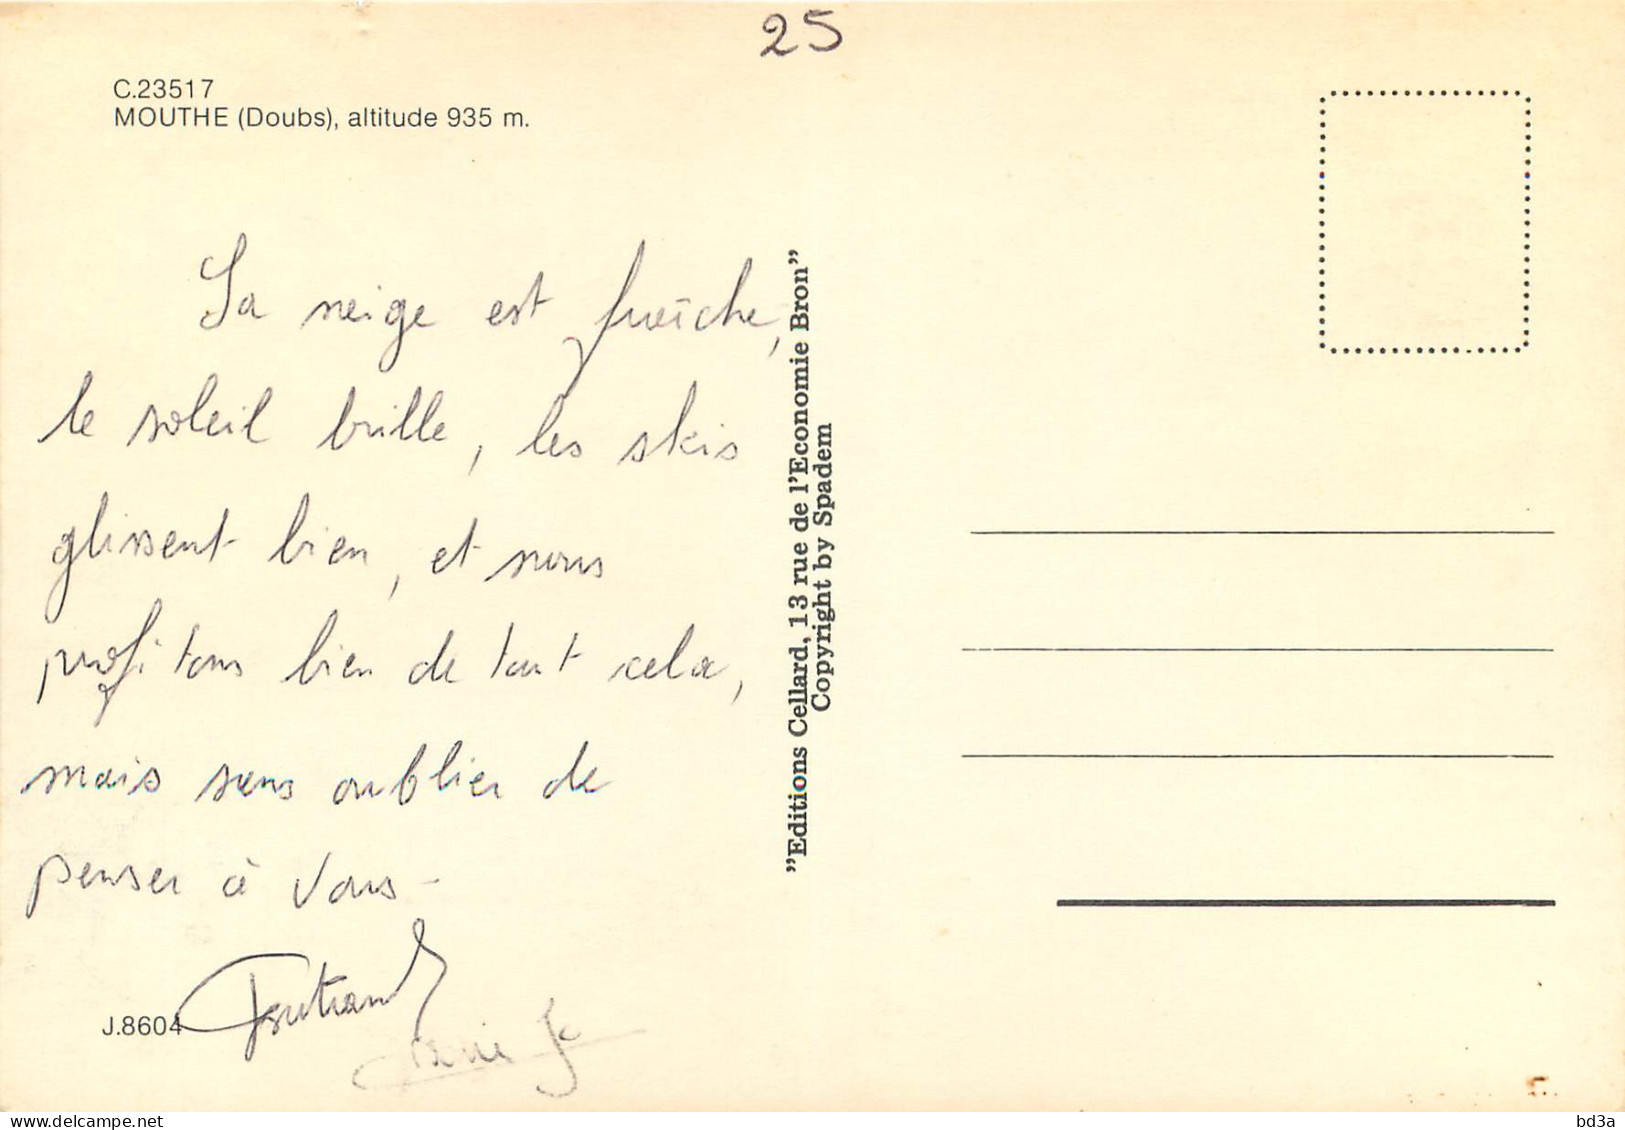 25
C.23517
MOUTHE (Doubs), altitude 935 m.
La neige est fraîche,
le soleil brille, les skis
glissent bien, et nous
profitons bien de tout cela,
mais sans oublier de
penser à vous -
Bertrand
J.8604
"Editions Cellard, 13 rue de l'Economie Bron"
Copyright by Spadem
delcampe.net
bd3a